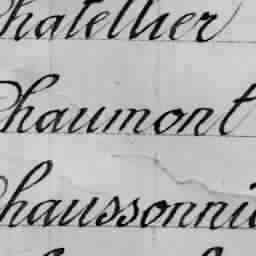 Chatellier
Chaumont
Chaussonni